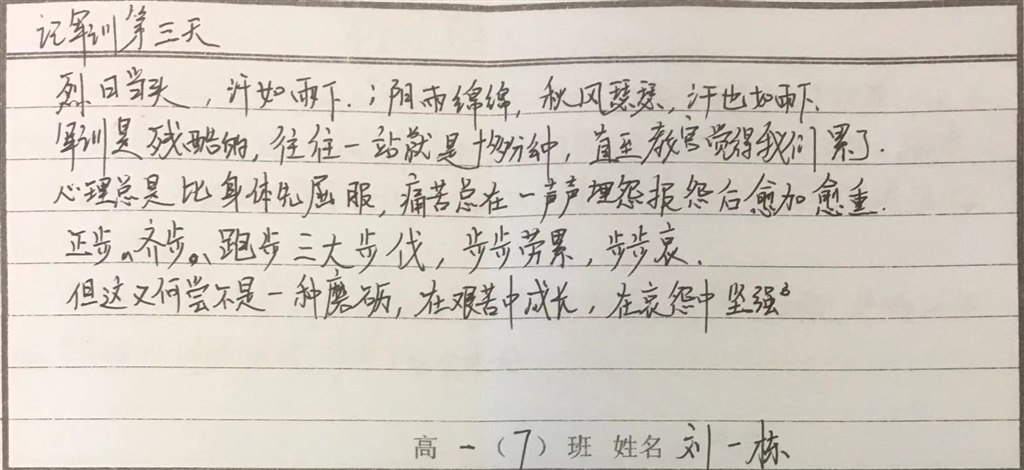 记军训第三天
烈日当头，汗如雨下.；阴雨绵绵，秋风瑟瑟，汗也如雨下.
军训是残酷的，往往一站就是十多分钟，直至教官觉得我们累了.
心理总是比身体先屈服，痛苦总在一声声埋怨报怨后愈加愈重.
正步、齐步、跑步三大步伐，步步劳累，步步哀.
但这又何尝不是一种磨砺，在艰苦中成长，在哀怨中坚强。
高一（7）班 姓名 刘一栋